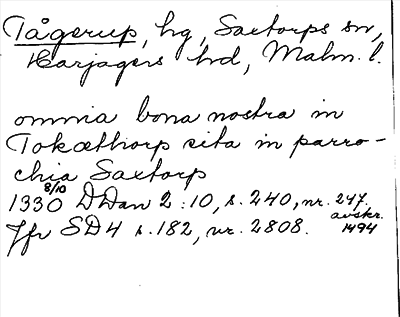 Tågerup, hg, Saxtorps sn,
Harjagers hd, Malm. l.
omnia bona nostra in
Tokæthorp sita in parro-
chia Saxtorp
1330 8/10 DDan 2:10, s. 240, nr. 247.
avskr. 1494
Jfr SD4 s. 182, nr. 2808.